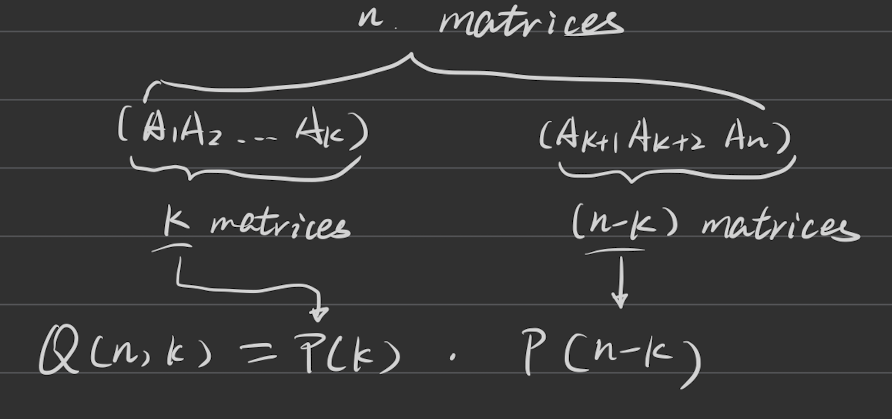 n. matrices
(A₁A₂ ... Aₖ) (Aₖ₊₁ Aₖ₊₂ Aₙ)
k matrices (n-k) matrices
Q(n, k) = P(k) . P(n-k)